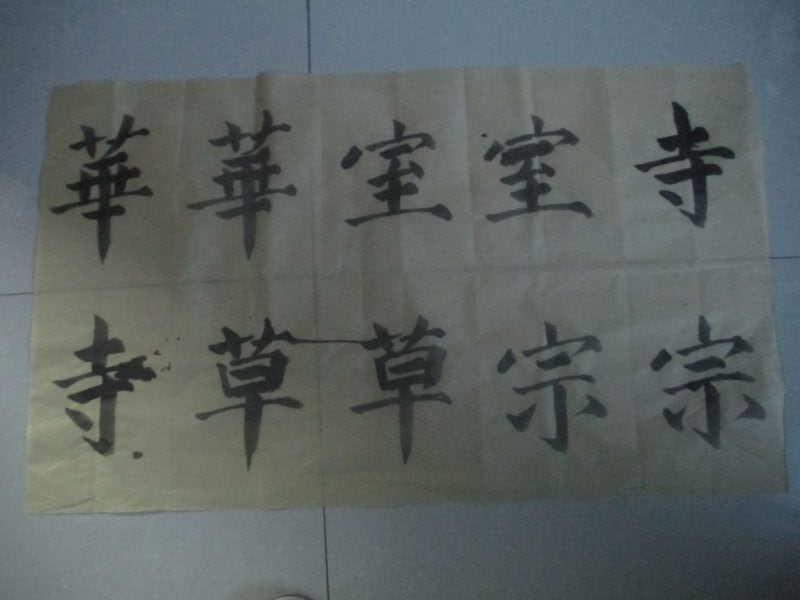 華華室室寺
寺草草宗宗